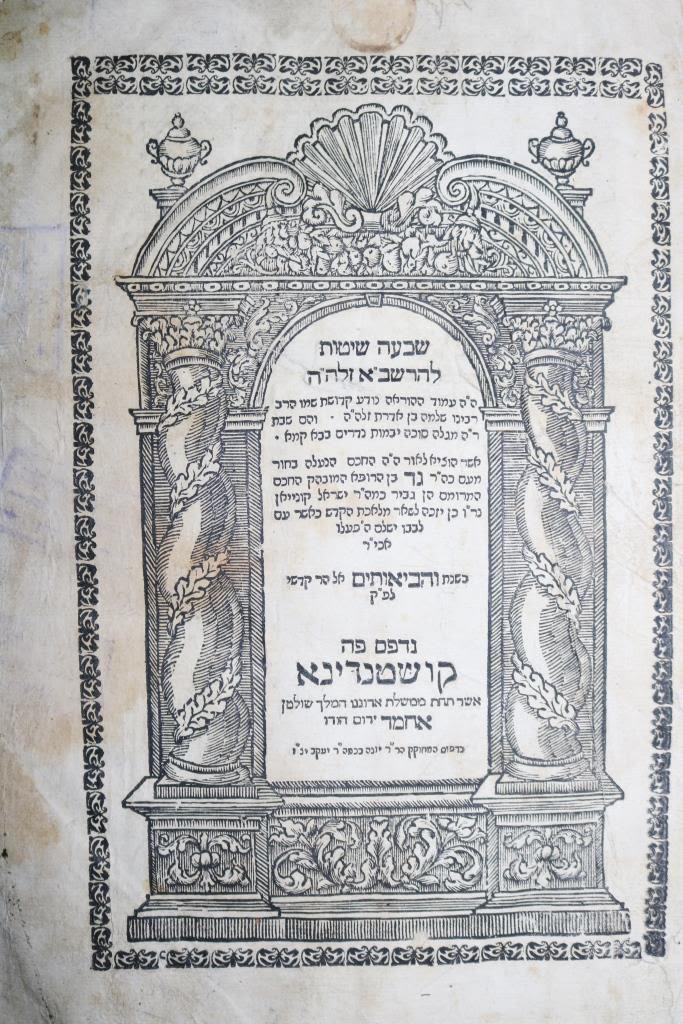 שבעה שיטות
להרשב"א זלה"ה
ה"ה עמוד ההוראה נודע קדושת שמו הרב
רבינו שלמה בן אדרת זלה"ה · והם שבת
ר"ה מגלה סוכה יבמות נדרים בבא קמא ·
אשר הוציא לאור ה"ה החכם הנעלה בחור
מעם כה"ר גד בן הרופא המובהק החכם
המרומם הן גביר כמה"ר ישראל קונייאן
נר"ו כן יזכה לשאר מלאכת הקדש כאשר עם
לבבו ישלם ה' פעלו
אכי"ר
בשנת והביאותים אל הר קדשי
לפ"ק
נדפס פה
קושטנדינא
אשר תחת ממשלת אדוננו המלך שולטן
אחמד ירום הודו
בדפוס המחוקק הר"ר יונה בכמה"ר יעקב יצ"ו